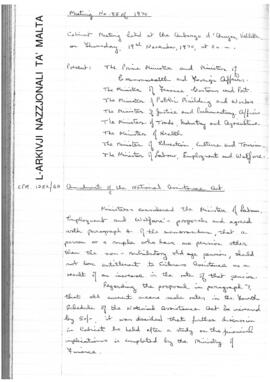 L-ARKIVJI NAZZJONALI TA' MALTA
Meeting No. 55 of 1970
Cabinet Meeting held at the Auberge d'Aragon, Valletta
on Thursday, 19th November, 1970, at
Present: The Prime Minister and Minister of
Commonwealth and Foreign Affairs.
The Minister of Finance Customs and Port.
The Minister of Public Building and Works
The Minister of Justice and Parliamentary Affairs
The Minister of Trade Industry and Agriculture.
The Minister of Health.
The Minister of Education, Culture and Tourism.
The Minister of Labour, Employment and Welfare.
Amendment of the National Assistance Act.
Ministers considered the Minister of Labour,
Employment and Welfare's proposals and agreed
with paragraph of the memorandum that a
person or a couple who have no pension other
than the non-contributory old age pension, should
not lose entitlement to Assistance as a
result of an increase in the rate of that pension.
Regarding the proposal in paragraph 7
that all current means scale rates in the Fourth
Schedule of the National Assistance Act be increased
by 5/-, it was decided that further discussion
in Cabinet be held after a study on the financial
implications is completed by the Ministry of
Finance.